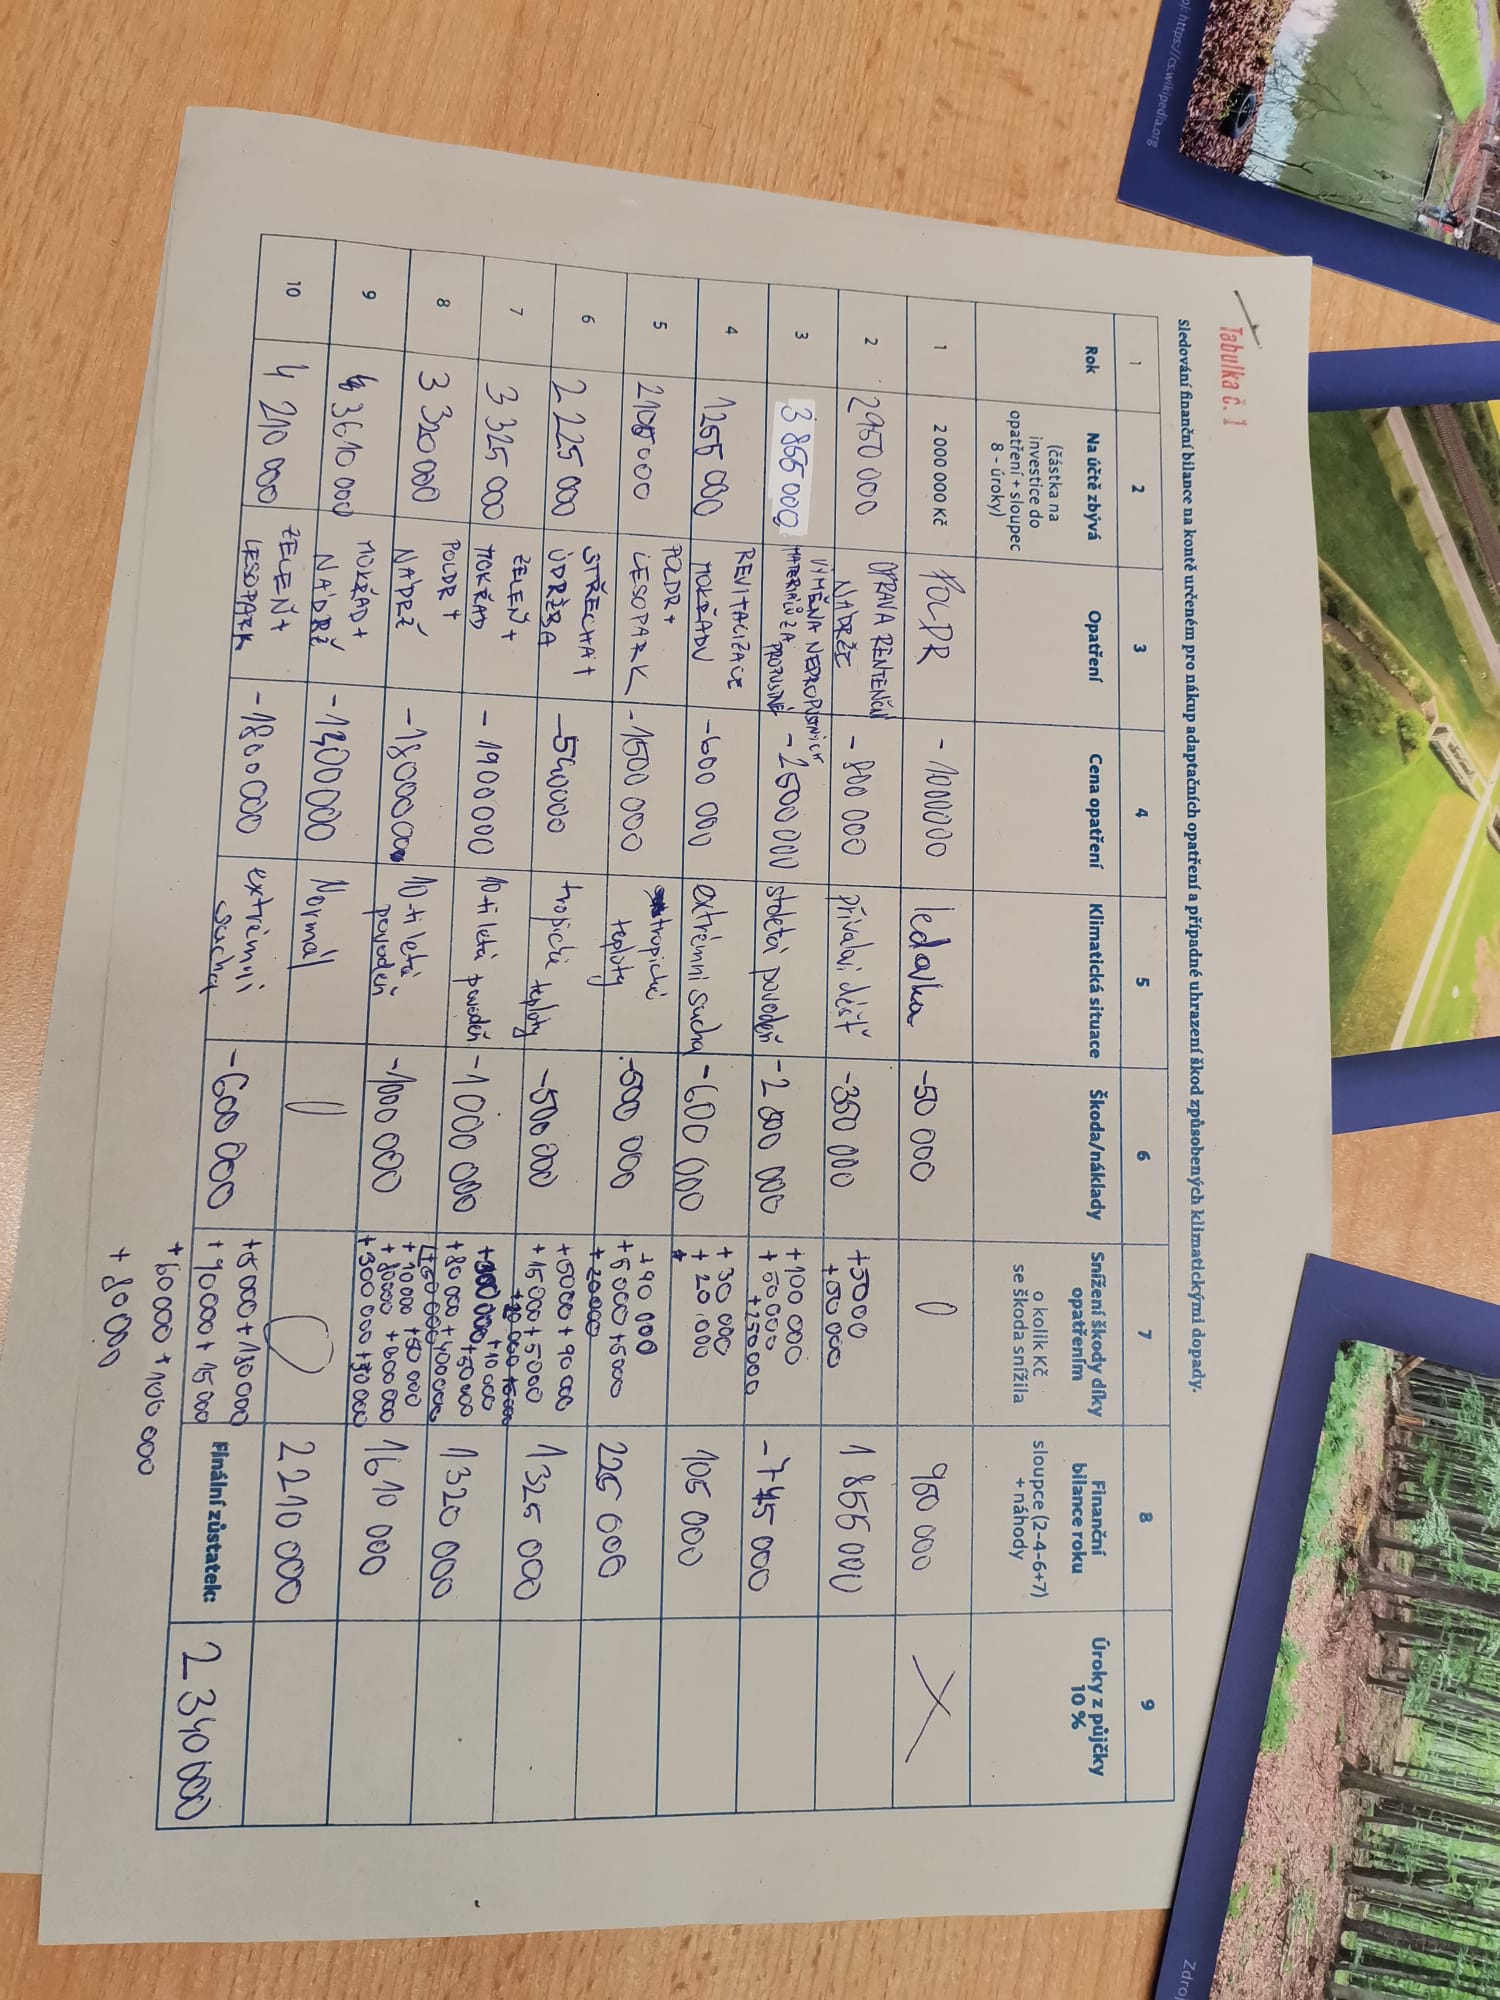 Tabulka č. 1
Sledování finanční bilance na kontě určeném pro nákup adaptačních opatření a případné uhrazení škod způsobených klimatickými dopady.
1 2 3 4 5 6 7 8 9
Rok Na účtě zbývá (částka na investice do opatření + sloupec 8 - úroky) Opatření Cena opatření Klimatická situace Škoda/náklady Snížení škody díky opatřením o kolik Kč se škoda snížila Finanční bilance roku sloupce (2-4-6+7) + náhody Úroky z půjčky 10 %
1 2 000 000 Kč POLDR - 1000000 ledovka -50 000 0 950 000 X
2 2950 000 OPRAVA RENTENČNÍ NÁDRŽE - 800 000 přívalový déšť -350 000 +5000 +50 000 1 855 000
3 3 855 000 VÝMĚNA NEPROPUSTNÝCH MATERIÁLŮ ZA PROPUSTNÉ - 2500 000 stoletá povodeň -2 500 000 +100 000 +50 000 +250 000 -745 000
4 1255 000 REVITALIZACE MOKŘADU -600 000 extrémní sucha -600 000 +30 000 +20 000 105 000
5 2105 000 POLDR + LESOPARK -1500 000 tropické teploty -500 000 +90 000 +5000 +5000 +20000 225 000
6 2 225 000 STŘECHA + ÚDRŽBA -540000 tropické teploty -500 000 +5000 + 90 000 +15000 + 5000 1 325 000
7 3 325 000 ZELEŇ + MOKŘAD - 1900 000 10-ti letá povodeň -1 000 000 +10 000 +80 000 + 50 000 +400 000 1 320 000
8 3 320 000 POLDR + NÁDRŽ -1800 000 10-ti letá povodeň -1000 000 +10 000 +50 000 +80000 +600 000 +300 000 +30 000 1610 000
9 3610 000 MOKŘAD + NÁDRŽ -1400 000 Normál 0 0 2 210 000
10 4 210 000 ZELEŇ + LESOPARK -1800 000 extrémní sucha -600 000 +5000 + 130 000 + 90 000 + 15 000 + 60 000 + 100 000 + 80 000
Finální zůstatek: 2 340 000
https://cs.wikipedia.org